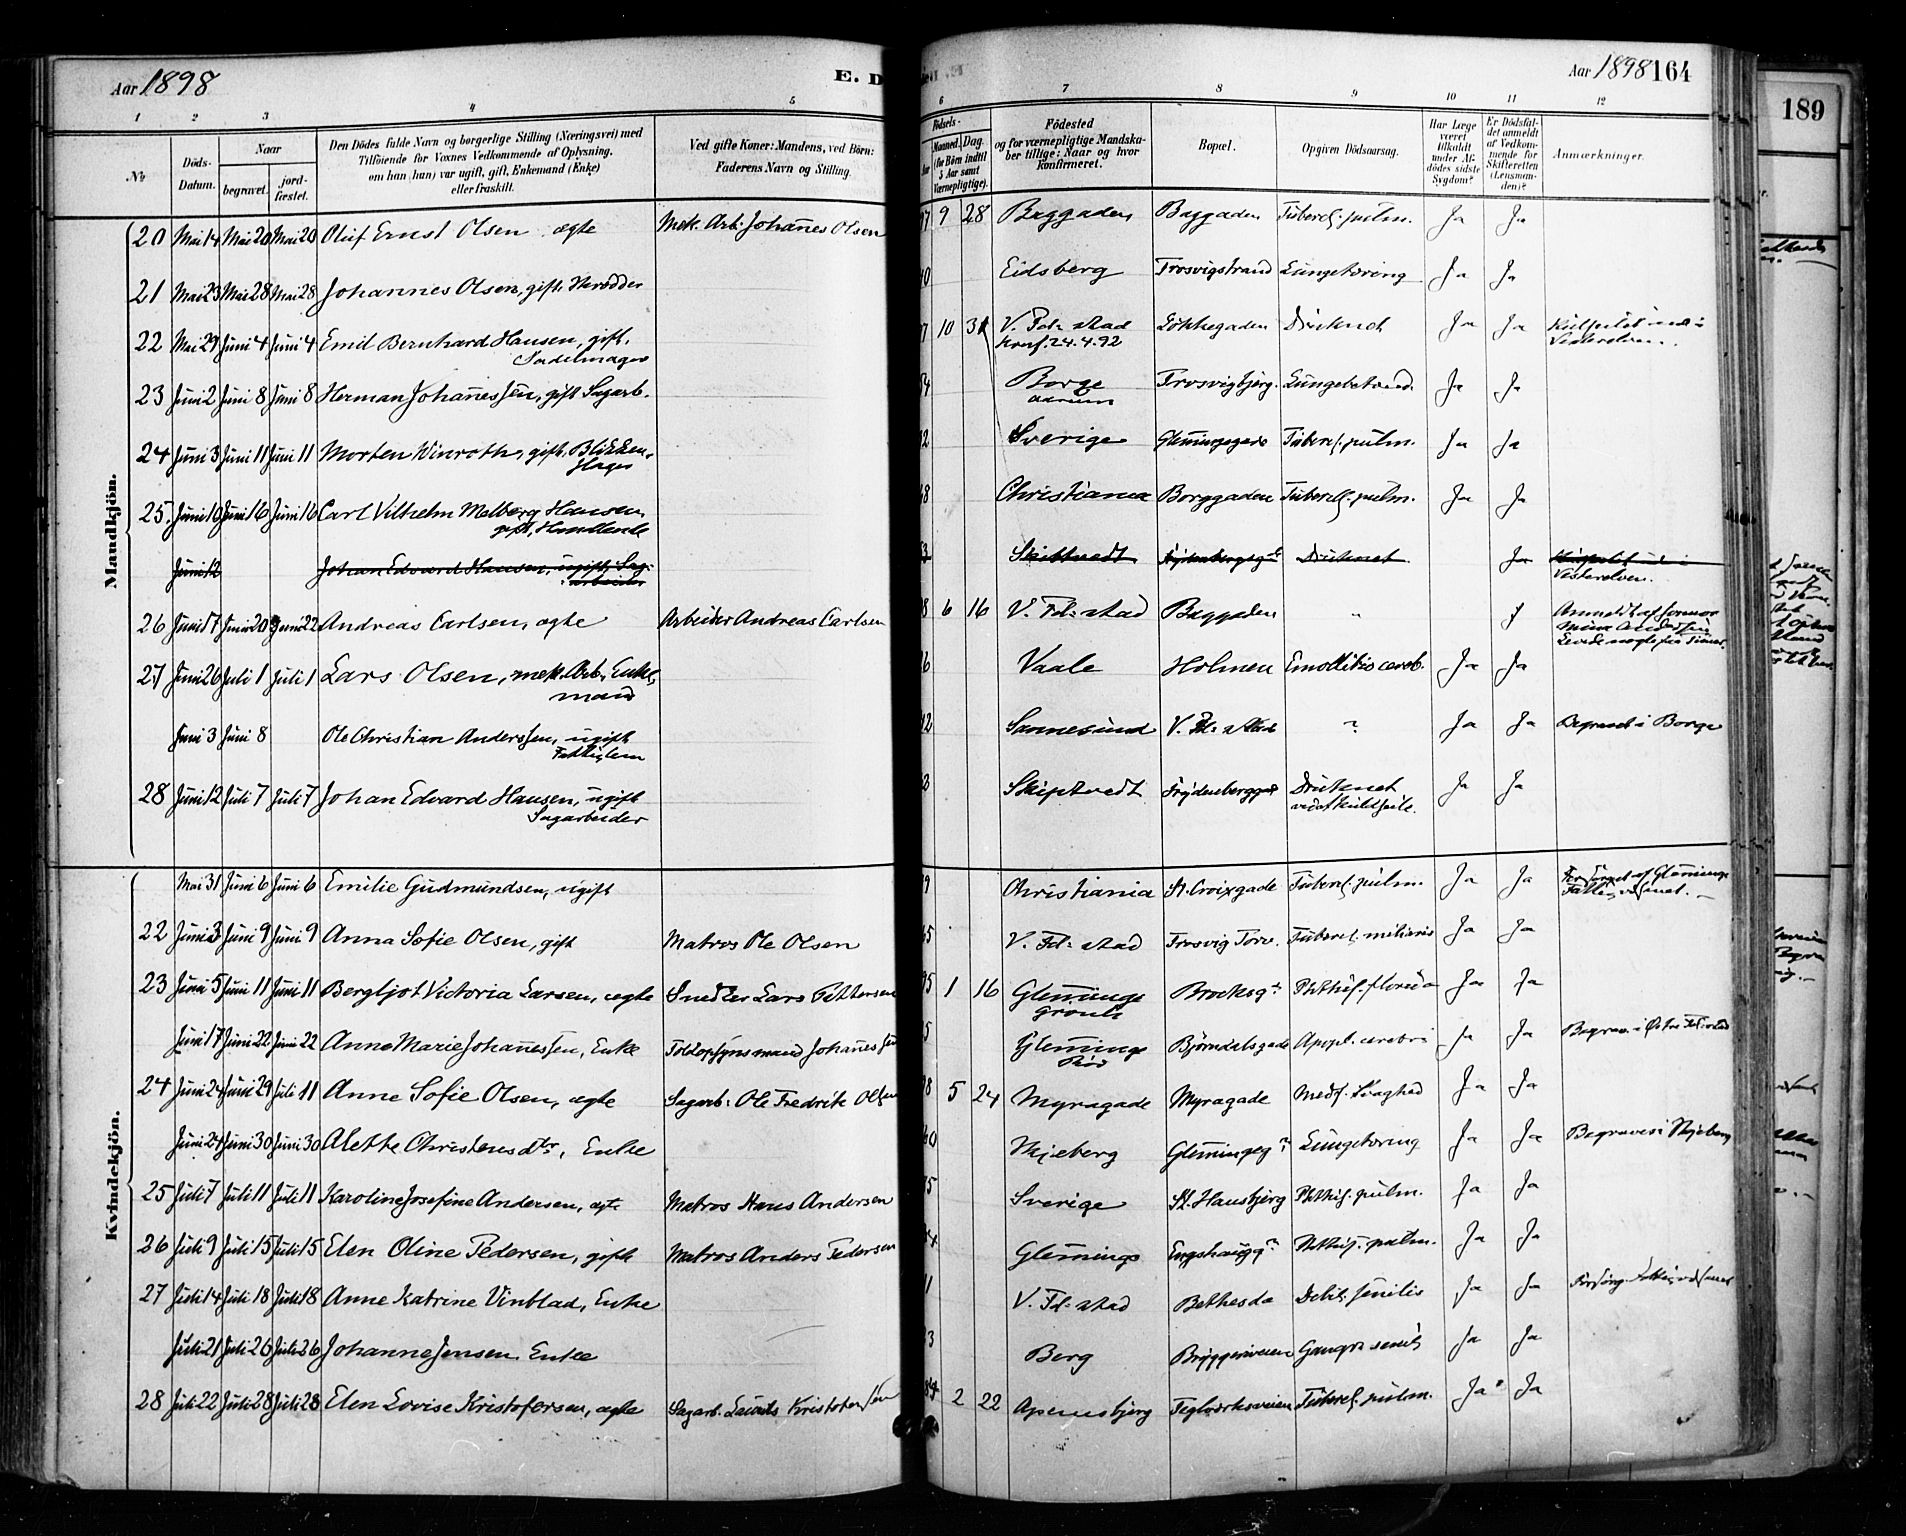 Aar 1898
E. D
Aar 1898 164
189
1 2 3 4 5 6 7 8 9 10 11 12
No
Döds-Datum.
Naar
begravet.
jord-fæstet.
Den Dödes fulde Navn og borgerlige Stilling (Næringsvei) med
Tilföiende for Voxnes Vedkommende af Oplysning,
om han (hun) var ugift, gift, Enkemand (Enke)
eller fraskilt.
Ved gifte Koner: Mandens, ved Börn:
Faderens Navn og Stilling.
Födsels-
Maaned. Dag.
(for Börn indtil
5 Aar samt
Værnepligtige).
Födested
og for værnepligtige Mandska-
ber tillige: Naar og hvor
konfirmeret.
Bopæl.
Opgiven Dödsaarsag.
Har Læge
været
tilkaldt
under Af-
dödes sidste
Sygdom?
Er Dödsfal-
det anmeldt
af Vedkom-
mende for
Skifteretten
(Lensman-
den)?
Anmærkninger.
Mandkjön.
20 Mai 14 Mai 20 Mai 20 Oluf Ernst Olsen ægte Mek. Arb. Johannes Olsen 9 28 Baggaden Baggaden Tubercl. pulm. Ja Ja
21 Mai 23 Mai 28 Mai 28 Johannes Olsen, gift Eidsberg Trosvigstrand Lungetæring Ja Ja
22 Mai 29 Juni 4 Juni 4 Emil Bernhard Hansen, gift, 10 31 V. Fd:stad Lökkegaden Druknet Ja Ja
Sadelmager Konf. 24.4.92 Vesterelven.
23 Juni 2 Juni 8 Juni 8 Herman Johannessen, gift Sagarb. Borge Trosvigbjerg. Lungebetænd. Ja Ja
24 Juni 3 Juni 11 Juni 11 Morten Winroth, gift, Blikken-
slager Sverige Glemmingegade Tubercl. pulm. Ja Ja
25. Juni 10 Juni 16 Juni 16 Carl Vilhelm Melberg Hansen
gift, Handlende Christiania Borggaden Tubercl. pulm. Ja Ja
Juni 12 Johan Edvard Hansen, ugift, Sag-
arbeider Druknet Ja
Vesterelven.
26 Juni 17 Juni 20 Juni 22 Andreas Carlsen, ægte Arbeider Andreas Carlsen 8 6 16 V. Fd:stad Baggaden " J Anmeldt af Jormor
Levede nogle faa Timer.
27 Juni 26 Juli 1 Juli 1 Lars Olsen, mek. Arb., Enke-
mand Vaale Holmen Emollitis cereb. Ja Ja
Juni 3 Juni 8 Ole Christian Anderssen, ugift
Fattiglem Sannesund V. Fd:stad ? Ja Ja Begravet i Borge
28 Juni 12 Juli 7 Juli 7 Johan Edvard Hansen, ugift
Sagarbeider Skiptvedt Druknet Ja Ja
Kvindekjön.
Mai 31 Juni 6 Juni 6 Emilie Gudmundsen, ugift Christiania St. Croixgade Tubercl. pulm. Ja Ja Forsörget af Glemminge
Fattigvæsenet.
22 Juni 3 Juni 9 Juni 9 Anna Sofie Olsen, gift Matros Ole Olsen V. Fd:stad Trosvig Torv. Tubercl. miliaris Ja Ja
23 Juni 5 Juni 11 Juni 11 Bergljot Victoria Larsen, ægte Snedker Lars Pettersen 95 1 16 Glemminge Brocksgt. Phthis. florida Ja Ja
Juni 17 Juni 22 Juni 22 Anne Marie Johannessen, Enke Toldopsynsmand Johannessen Glemminge Björndalsgade Appl. cerebri Ja Ja Begrav. i Østre Fd:stad
24 Juni 24 Juni 29 Juli 11 Anne Sofie Olsen, ægte Sagarb: Ole Fredrik Olsen 98 5 24 Myragade Myragade Medf. Svaghed Ja Ja
Juni 24 Juni 30 Juni 30 Alette Christensdtr, Enke Skjeberg Lungetæring Ja Ja Begraves i Skjeberg
25 Juli 7 Juli 11 Juli 11 Karoline Josefine Andersen, ægte Matros Hans Andersen Sverige St. Hansbjerg Phthis. pulm. Ja Ja
26 Juli 9 Juli 15 Juli 15 Elen Oline Pedersen, gift Matros Anders Pedersen Glemminge Phthis. pulm. Ja Ja
27 Juli 14 Juli 18 Juli 18 Anne Katrine Vinblad, Enke V. Fd:stad Bethesda Debil. senilis Ja Ja Forsörg. Fattigvæsenet
Juli 21 Juli 26 Juli 26 Johanne Jensen, Enke Berg Bryggeriveien Gangr. senil. Ja Ja
28 Juli 22 Juli 28 Juli 28 Elen Lovise Kristofersen, ægte Sagarb. Kristofersen 2 22 Apenesbjerg Teglværksveien Tubercl. pulm. Ja Ja